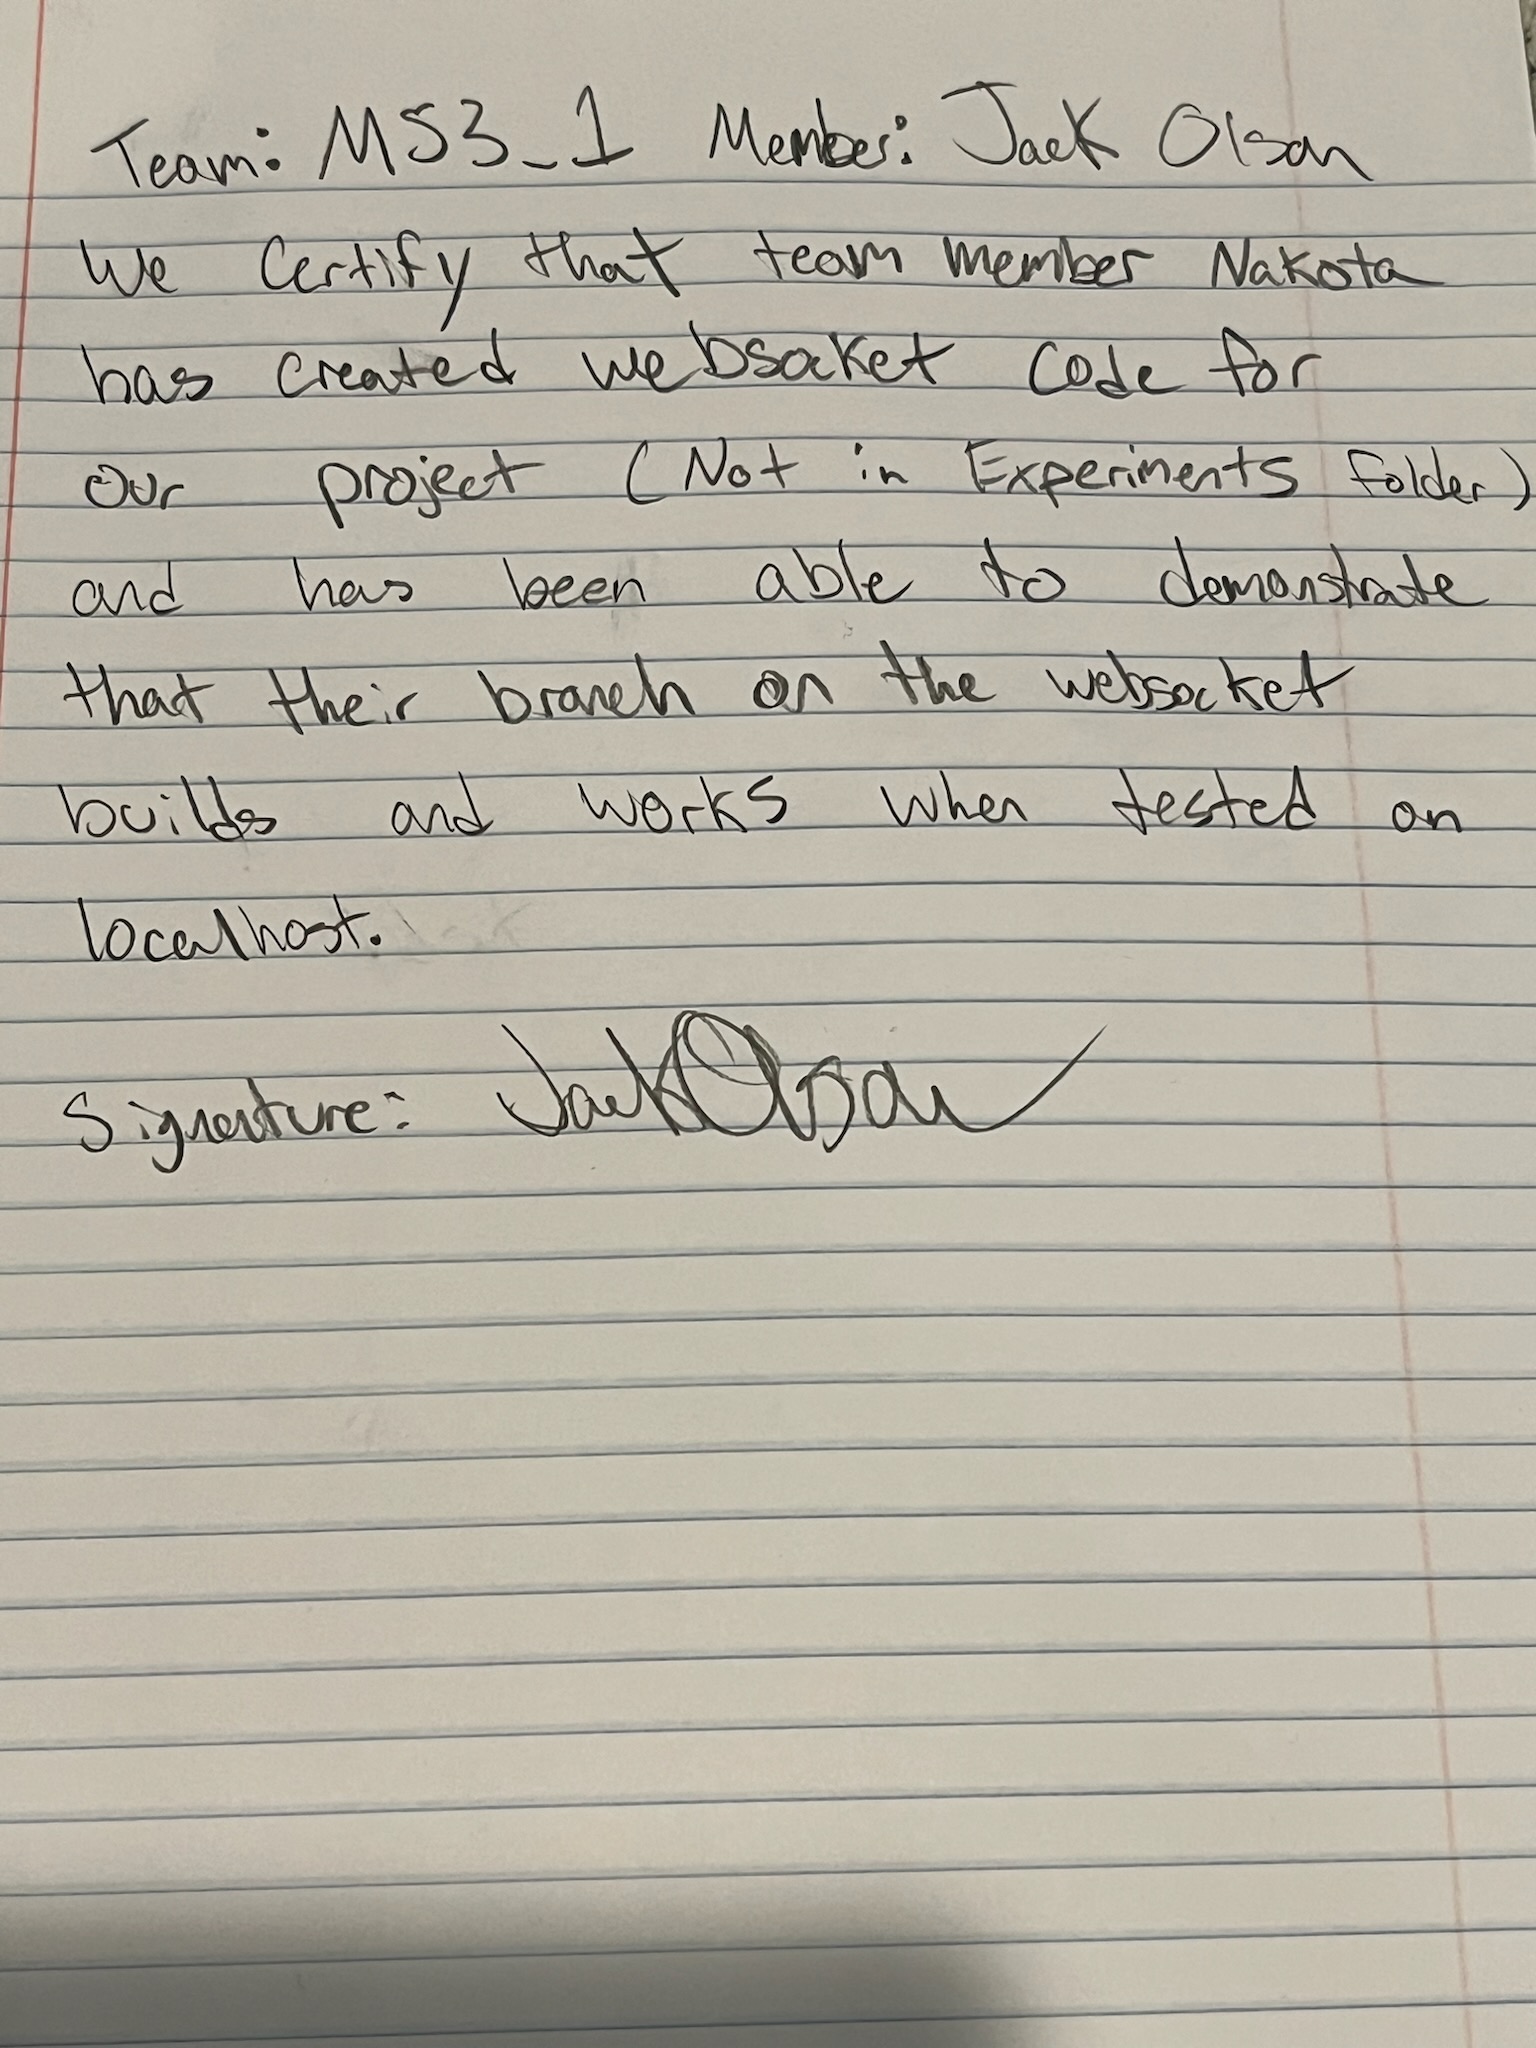 Team: MS3_1 Member: Jack Olson
We certify that team member Nakota
has created websocket code for
our project (Not in Experiments folder)
and has been able to demonstrate
that their branch on the websocket
builds and works when tested on
localhost.
Signature: Jack Olson